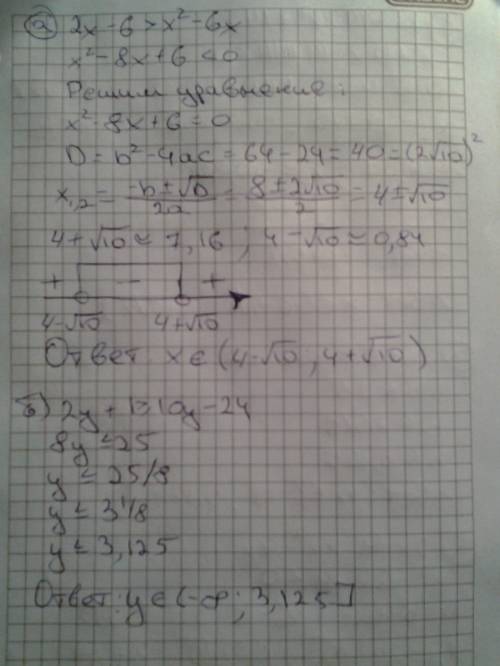 а) 2x - 6 > x² - 6x
x² - 8x + 6 < 0
Решим уравнение:
x² - 8x + 6 = 0
D = b² - 4ac = 64 - 24 = 40 = (2√10)²
x₁,₂ = (-b ± √D)/2a = (8 ± 2√10)/2 = 4 ± √10
4 + √10 ≈ 7,16 ; 4 - √10 ≈ 0,84
+ - +
4-√10 4+√10
Ответ x ∈ (4-√10 , 4+√10)
б) 2y + 1 ≥ 10y - 24
8y ≤ 25
y ≤ 25/8
y ≤ 3 1/8
y ≤ 3,125
Ответ: y ∈ (-∞; 3,125]